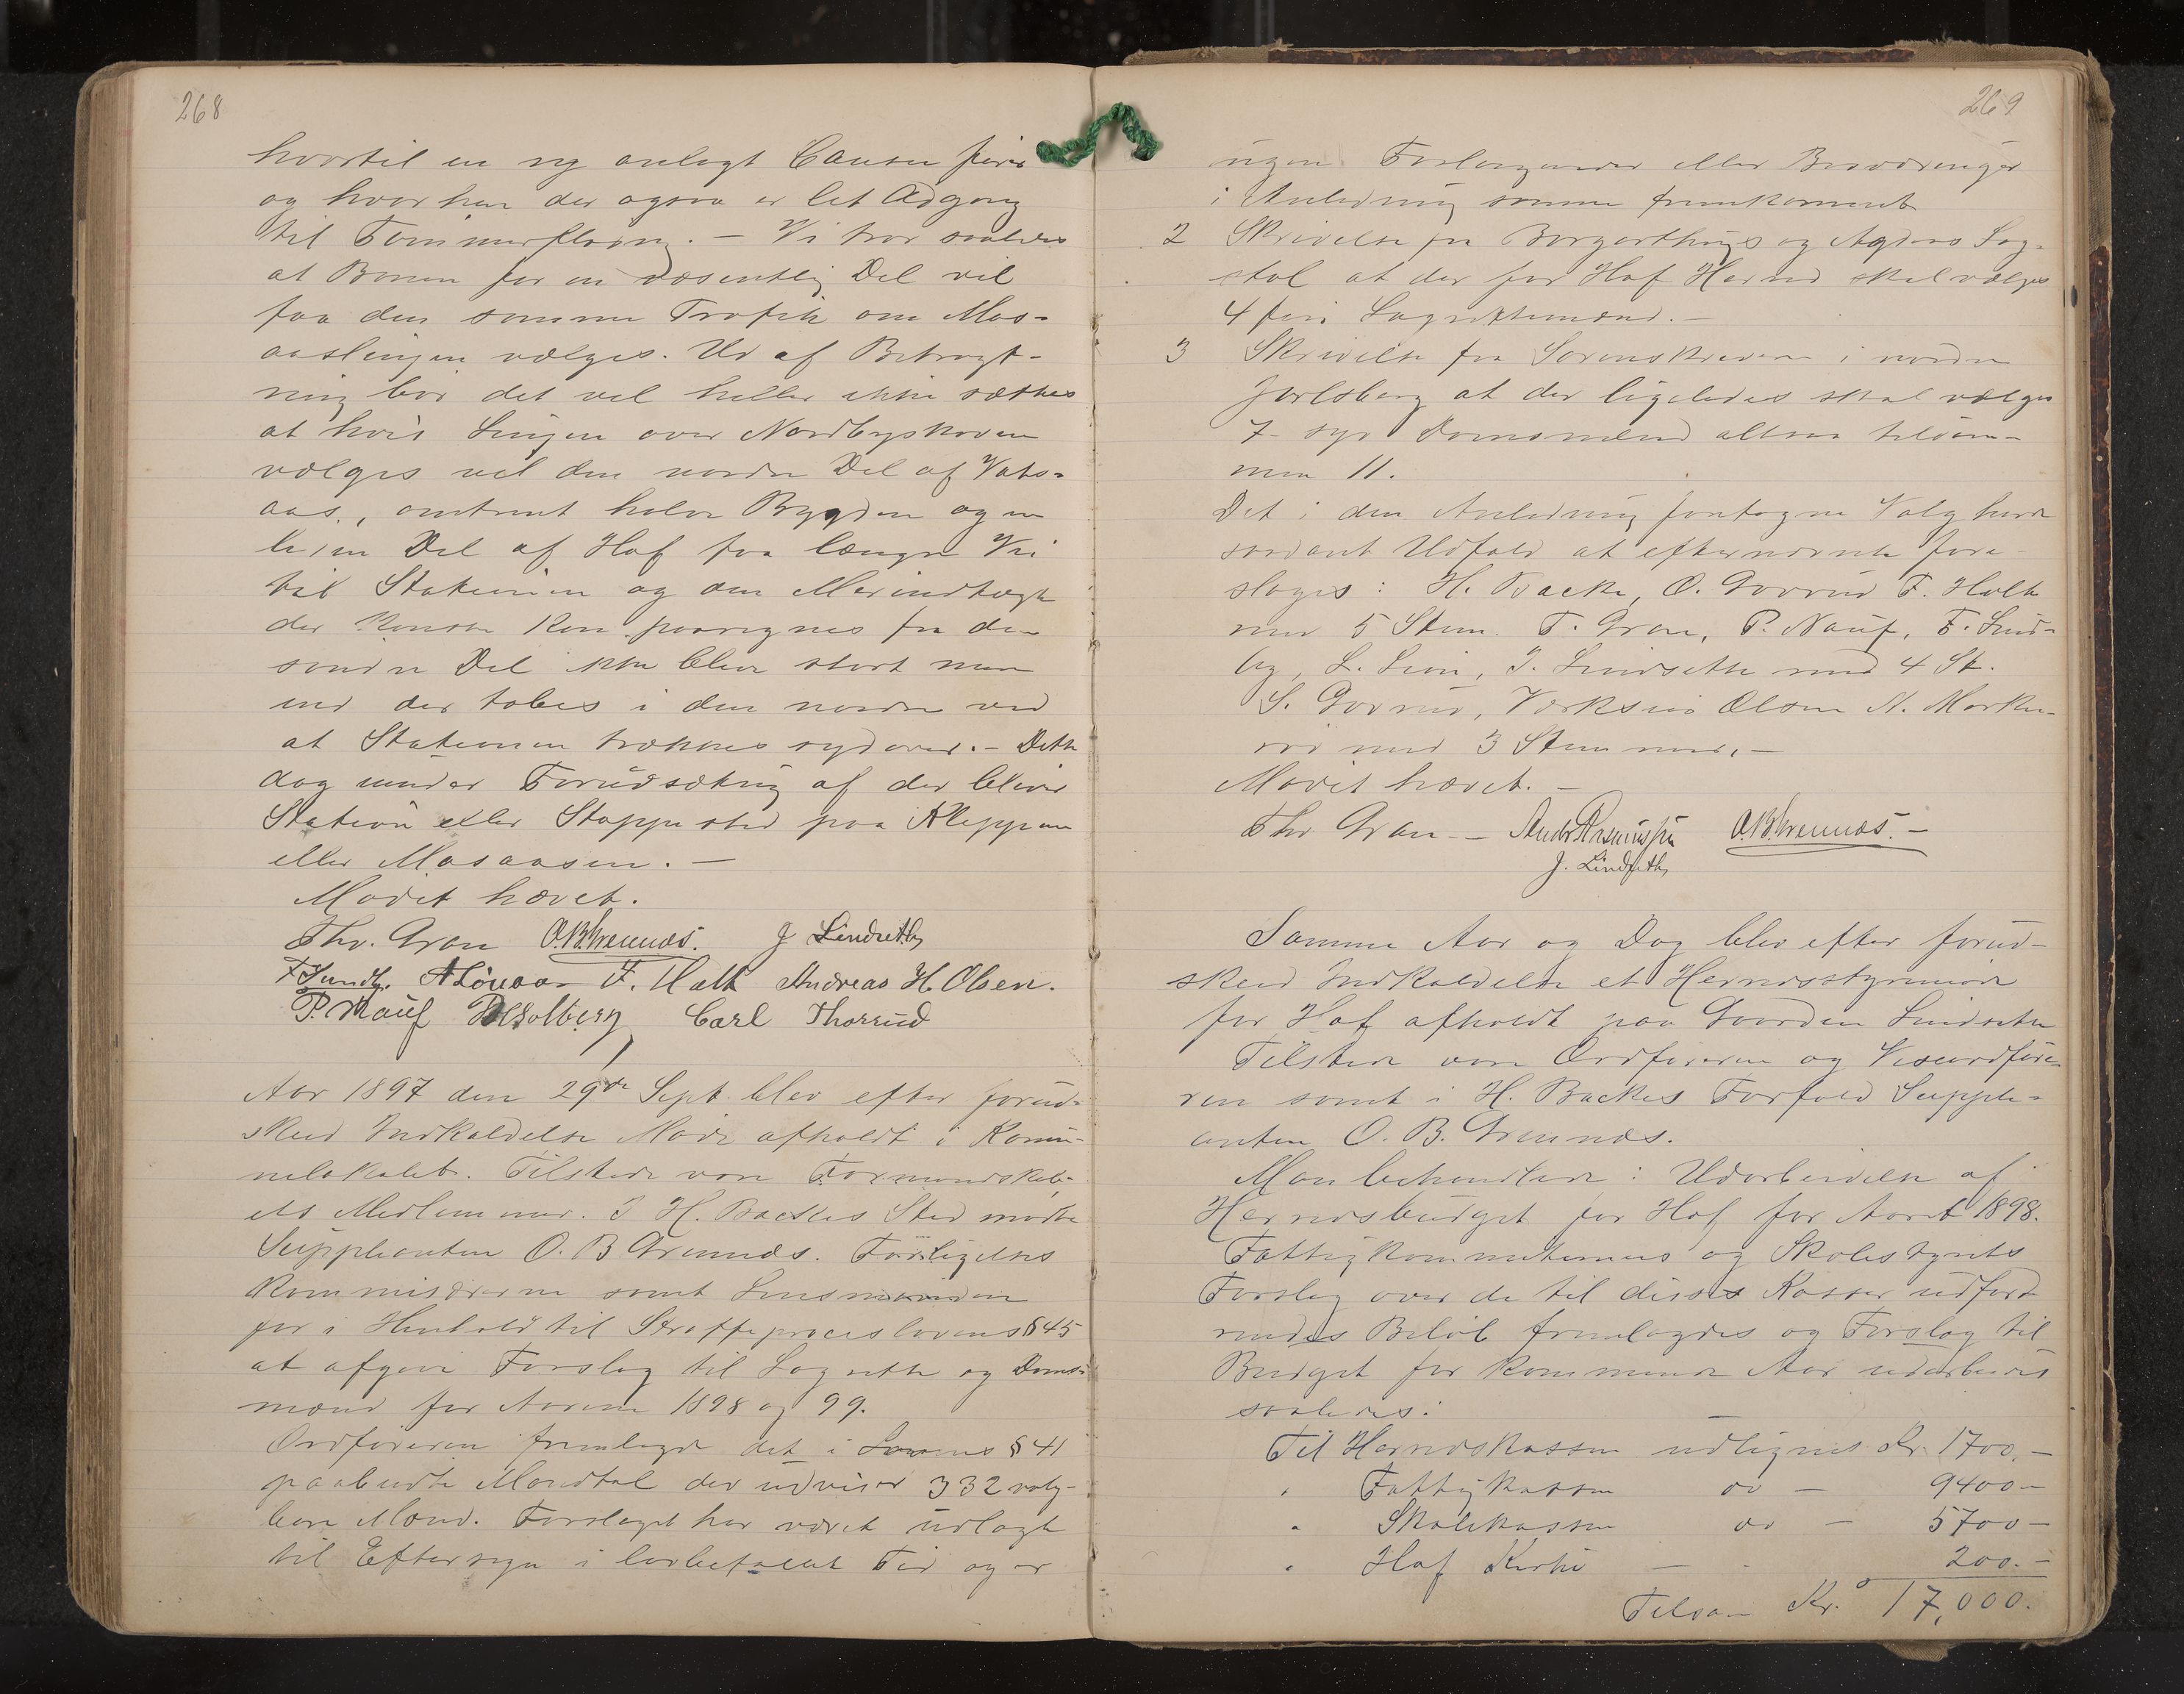 268
hvortil en ny anlagt Causen fører
og hvorhen der ogsaa er let Adgang
til Tømmerflødning. — Vi tror saaledes
at Banen for en væsentlig Del vil
faa den samme Trafik om Mos-
aaslinjen vælges. Ud af Betragt-
ning bør det vel heller ikke sættes
at hvis Linjen over Nordbyskoven
vælges vil den nordre Del af Vats-
aas, omtrent halve Bygden og en
Del af Hof faa længre Vei
til Stationen og den Merindtægt
der kunde paaregnes fra den
søndre Del ikke blive stort mere
end der tabes i den nordre ved
at Stationen trækkes sydover. — Dette
dog under Forudsætning af der bliver
Station eller Stoppested paa Kleppen
eller Mosaasen. —
Mødet hævet.
Thv. Gran O.B. Grennæs. J Lindseth
F Sundby. F. Holt Andreas H. Olsen.
P. Nauf Solberg Carl Thorrud
Aar 1897 den 29de Sept. blev efter forud-
skeed Indkaldelse Møde afholdt i Komu-
nelokalet. Tilstede vare Formandskab-
ets Medlemmer. I H. Backes Sted mødte
Supplianten O. B Grennæs. Forligelses
kommisærerne samt Lensmanden
for i Henhold til Straffeproceslovens § 45
at afgive Forslag til Lagrette og Doms-
mænd for Aarene 1898 og 99.
Ordføreren fremlagde det i Lovens § 41
paabudte Mandtal der udviser 332 valg-
bare Mænd. Forslaget har været udlagt
til Eftersyn i lovbefalet Tid og er
269
ingen Forlangender eller Besværinger
i Anledning samme fremkommet
2 Skrivelse fra Borgarthings og Agders Lag-
stol at der for Hof Herred skal vælges
4 fire Lagrettemænd. —
3 Skrivelse fra Sorenskriveren i nordre
Jarlsberg at der ligeledes skal vælges
7 syv Domsmænd altsaa tilsam-
men 11.
Det i den Anledning foretagne Valg havde
saadant Udfald at efternævnte fore-
slages: H. Backe, O. Gorrud F. Holt
med 5 Stem. T. Gran, P. Nauf, F. Sund-
by, L. Lien, J. Lindseth med 4 St.
S. Gorrud, Olsen N. Marke-
rød med 3 Stemmer. —
Mødet hævet. —
Thv Gran — Andr Rasmussen O.B. Grennæs. —
J. Lindseth
Samme Aar og Dag blev efter forud-
skeed Indkaldelse et Herredsstyremøde
for Hof afholdt paa Gaarden Lindseth
Tilstede vare Ordføreren og Viseordføre-
ren samt i H. Backes Forfald Supple-
anten O. B. Grennæs.
Man behandlede: Udarbeidelse af
Herredsbudget for Hof for Aaret 1898.
Fattigkommitionens og Skolestyrets
Forslag over de til disses Kasser udfor-
rendes Beløb fremlagdes og Forslag til
Budget for kommende Aar udarbeides
saaledes:
Til Herredskassen udlignes Kr. 1700. —
" Fattigkassen do — 9400 —
" Skolekassen do — 5700 —
" Hof Kirke — 200. —
Tilsam Kr. 17,000.